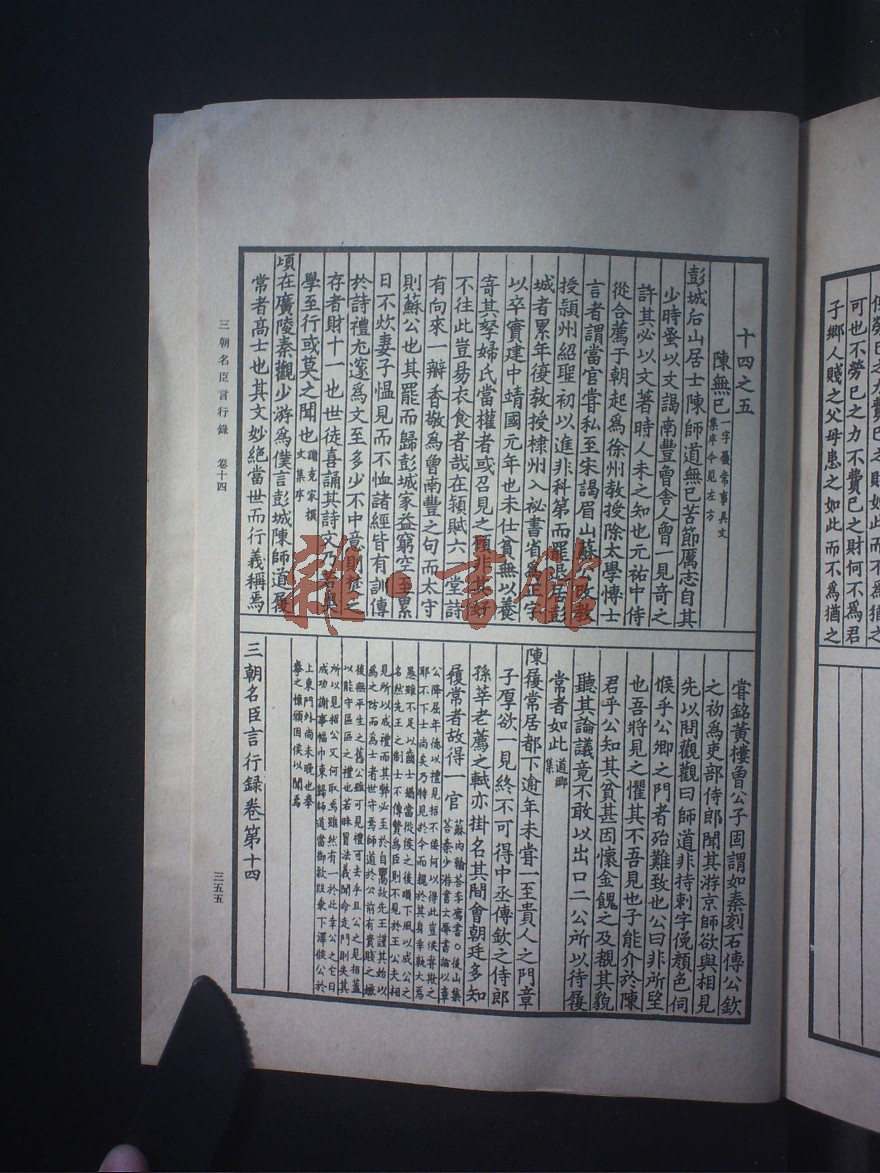 十四之五
陳無已 一字履常事具文
集序今見左方
彭城后山居士陳師道無已苦節厲志自其
少時蚤以文謁南豐曾舍人曾一見奇之
許其必以文著時人未之知也元祐中侍
從合薦于朝起為徐州教授除太學博士
言者謂當官嘗私至宋謁眉山蘇公改教
授潁州紹聖初以進非科第而罷退居彭
城者累年復教授棣州入祕書省為正字
以卒實建中靖國元年也未仕貧無以養
寄其孥婦氏當權者或召見之顧非其好
不往此豈易衣食者哉在潁賦六一堂詩
有向來一瓣香敬為曾南豐之句而太守
則蘇公也其罷而歸彭城家益窮空至累
日不炊妻子慍見而不恤諸經皆有訓傳
於詩禮尤邃為文至多少不中意則焚之
存者財十一也世徒喜誦其詩文乃若奧
學至行或莫之聞也 謝克家撰
文集序
頃在廣陵秦觀少游為僕言彭城陳師道履
常者高士也其文妙絕當世而行義稱焉
嘗銘黃樓曾公子固謂如秦刻石傅公欽
之初為吏部侍郎聞其游京師欲與相見
先以問觀觀曰師道非持刺字俛顏色伺
候乎公卿之門者殆難致也公曰非所望
也吾將見之懼其不吾見也子能介於陳
君乎公知其貧甚因懷金餽之及覩其貌
聽其論議竟不敢以出口二公所以待履
常者如此 道鄉
集
陳履常居都下逾年未嘗一至貴人之門章
子厚欲一見終不可得中丞傅欽之侍郎
孫莘老薦之軾亦掛名其間會朝廷多知
履常者故得一官 蘇內翰答李廌書○後山集
答秦少游書士辱書諭以章
公降屈年德以禮見招不佞何以得此豈侯嘗欺之
耶不下士尚矣乃特見於今而親於其身幸孰大焉
愚雖不足以齒士猶當從侯之後順下風以成公之
名然先王之制士不傳贄為臣則不見於王公夫相
見所以成禮而其弊必至於自鬻故先王謹其始以
為之防而為士者世守焉師道於公前有貴賤之嫌
後無平生之舊公雖可見禮可去乎且公之見招蓋
以能守區區之禮也若昧冒法義聞命走門則失其
所以見招公又何取焉雖然有一於此幸公之它日
成功謝事幅巾東歸師道當御款段乘下澤候公於
上東門外尚未晚也拳
拳之懷願因侯以聞焉
三朝名臣言行錄卷第十四
三朝名臣言行錄 卷十四
三五五
可也不勞已之力不費已之財何不為君
子鄉人賤之父母患之如此而不為猶之
雜·書館